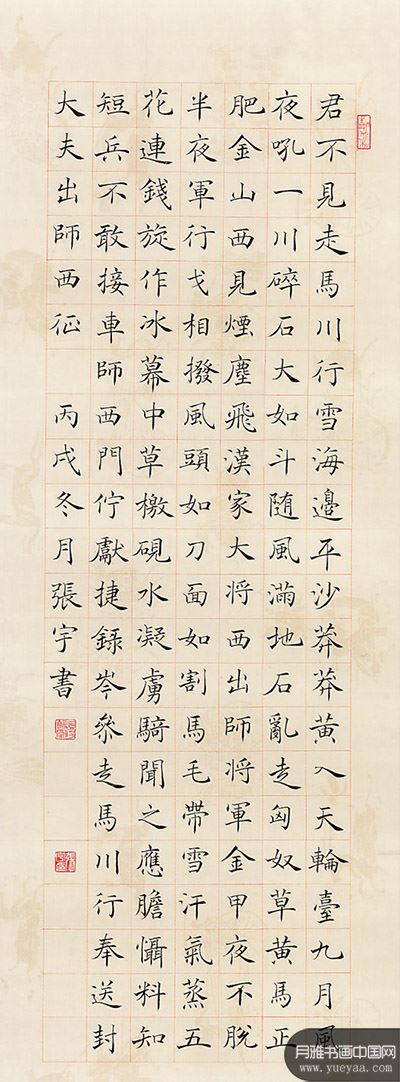 君不見走馬川行雪海邊平沙莽莽黃入天輪臺九月風
夜吼一川碎石大如斗随風滿地石亂走匈奴草黃馬正
肥金山西見煙塵飛漢家大将西出師将軍金甲夜不脫
半夜軍行戈相撥風頭如刀面如割馬毛帶雪汗氣蒸五
花連錢旋作冰幕中草檄硯水凝虜騎聞之應膽懾料知
短兵不敢接車師西門佇獻捷錄岑叅走馬川行奉送封
大夫出師西征 丙戌冬月張宇書
月雅书画中国网
www.yueyaa.com